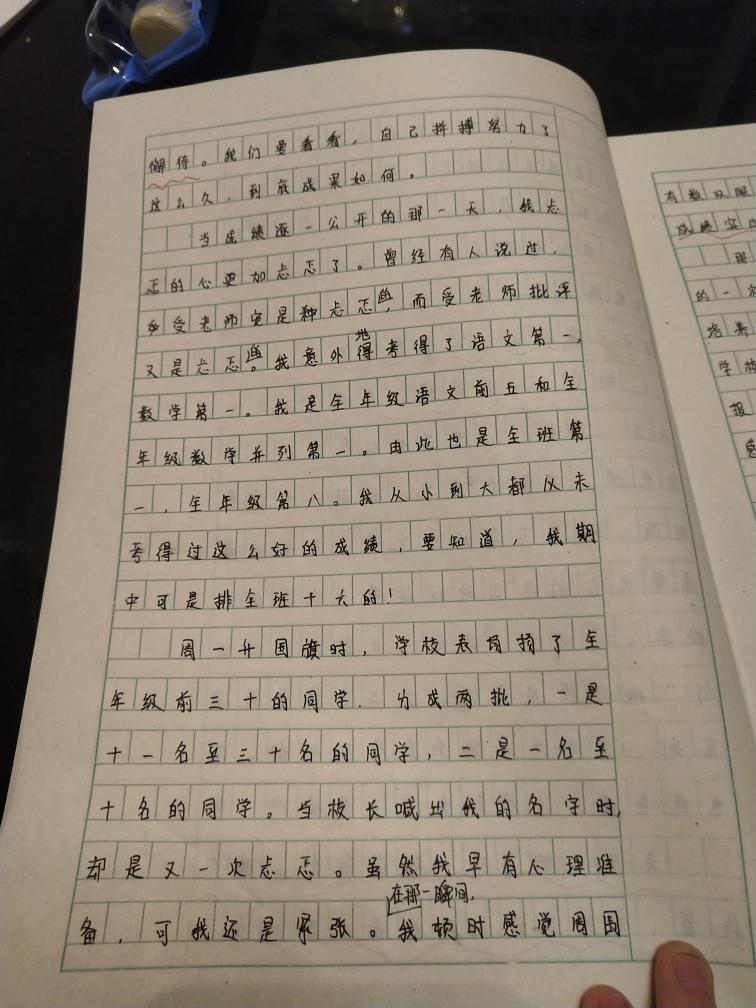 懈待。我们要看看，自己拼搏努力了
这么久，到底成果如何。
当成绩逐一公开的那一天，我忐
忑的心更加忐忑了。曾经有人说过，
享受老师宠是种忐忑，而受老师批评
又是忐忑。我意外得地考得了语文第一，
数学第一。我是全年级语文前五和全
年级数学并列第一。由此也是全班第
一，全年级第八。我从小到大都从未
考得过这么好的成绩，要知道，我期
中可是排全班十六的！
周一升国旗时，学校表扬了全
年级前三十的同学．分成两批，一是
十一名至三十名的同学，二是一名至
十名的同学。当校长喊出我的名字时，
却是又一次忐忑。虽然我早有心理准
在那一瞬间，
备，可我还是紧张。我顿时感觉周围
有数双眼
成绩突
那
的一
培养
学
报
感